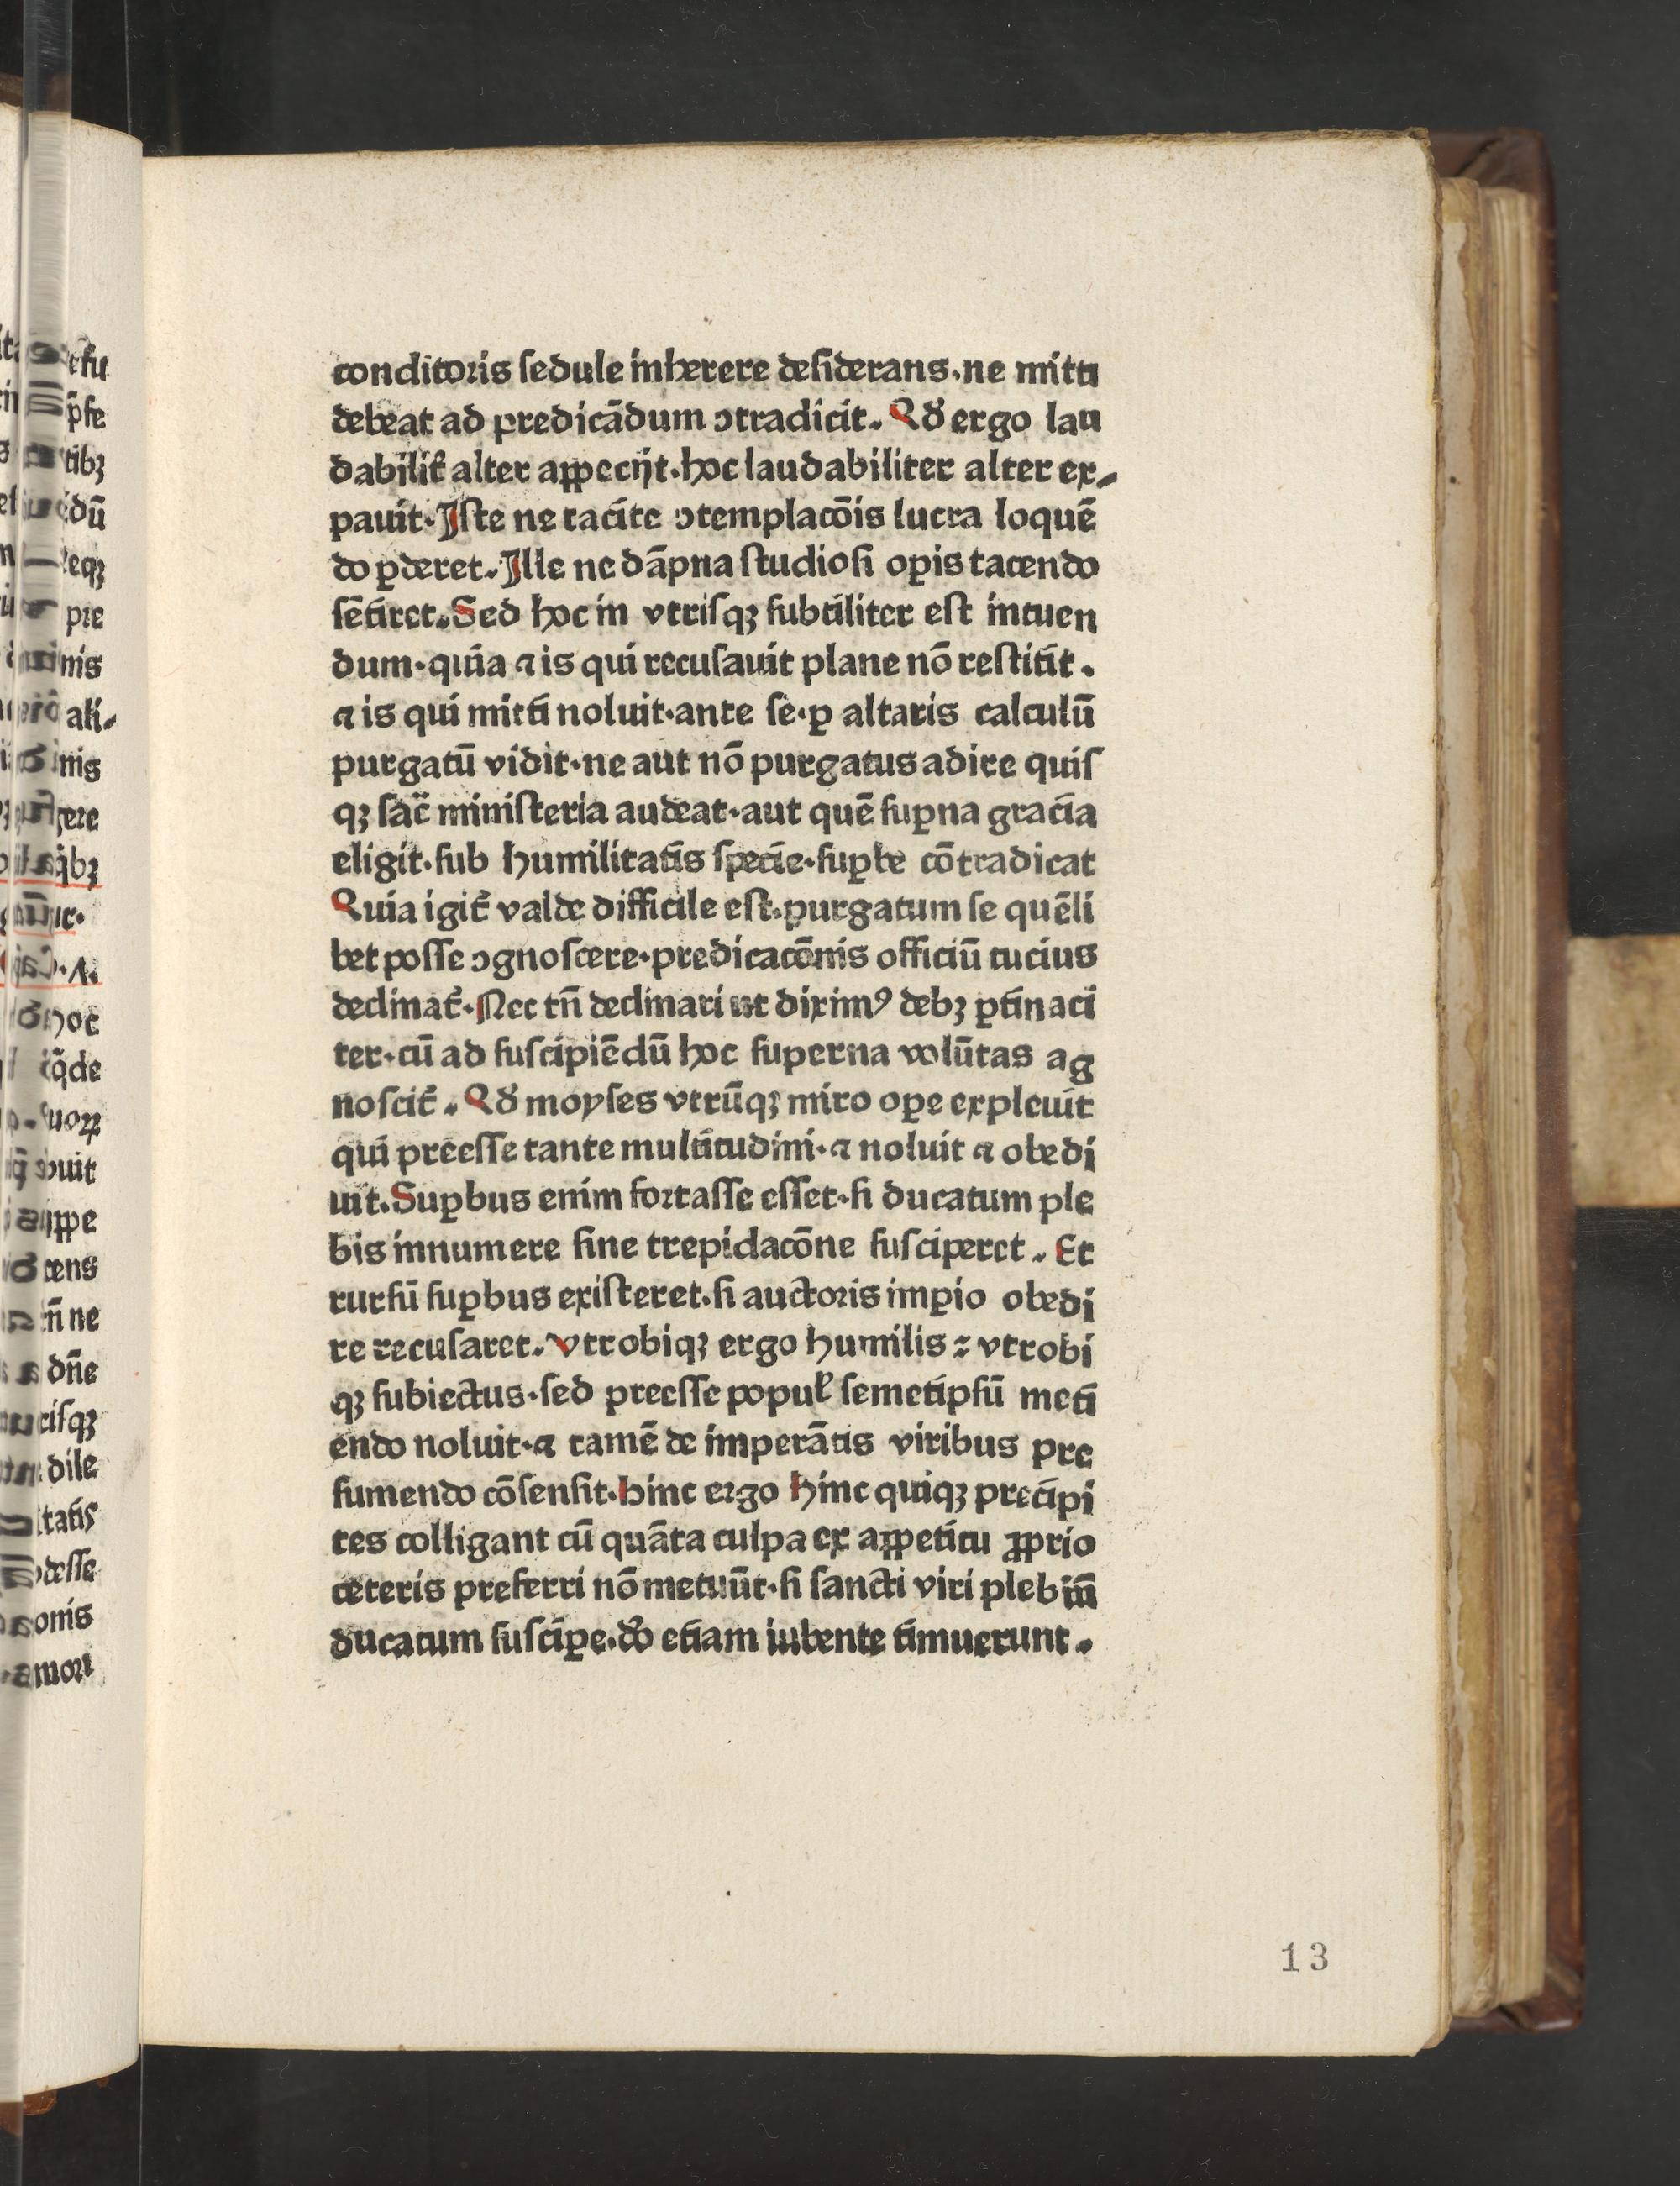 conditoris ſedule inherere deſiderans.ne mitti
debeat ad predicādum ↄtradicit. Qđ ergo lau
dabilit̄ alter aꝑpecijt.hoc laudabiliter alter ex⸗
pauit.Iſte ne tacite ↄtemplacōis lucra loquē
do ꝑderet.Ille ne dāpna ſtudioſi oꝑis tacendo
ſētiret.Sed hoc in vtriſqꝫ ſubtiliter eſt intuen
dum.quia ⁊ is qui recuſauit plane nō reſtitit.
⁊ is qui mitti noluit.ante ſe.ꝑ altaris calculū
purgatū vidit.ne aut nō purgatus adire quiſ
qꝫ ſac̄ miniſteria audeat.aut quē ſuꝑna gracia
eligit.ſub humilitatis ſpecie.ſuꝑbe cōtradicat
Quia igit̄ valde difficile eſt.purgatum ſe quēli
bet poſſe ↄgnoſcere.predicacōnis officiū tucius
declinat̄.Nec tn̄ declinari ut diximꝰ debꝫ ꝑtinaci
ter.cū ad ſuſcipiēdū hoc ſuperna volūtas ag
noſcit̄. Qđ moyſes vtrūqꝫ miro oꝑe expleuit
qui preeſſe tante multitudini.⁊ noluit ⁊ obedi
uit.Suꝑbus enim fortaſſe eſſet.ſi ducatum ple
bis innumere ſine trepidacōne ſuſciperet. Et
rurſū ſuꝑbus exiſteret.ſi auctoris imꝑio obedi
re recuſaret.vtrobiqꝫ ergo humilis ⁊ vtrobi
qꝫ ſubiectus.ſed preeſſe popuł ſemetipſū meti
endo noluit.⁊ tamē de imperātis viribus pre
ſumendo cōſenſit.hinc ergo hinc quiqꝫ precipi
tes colligant cū quāta culpa ex aꝑpetitu ꝓprio
ceteris preferri nō metuūt.ſi ſancti viri plebiū
ducatum ſuſciꝑe.do̅ etiam iubente timuerunt.
13